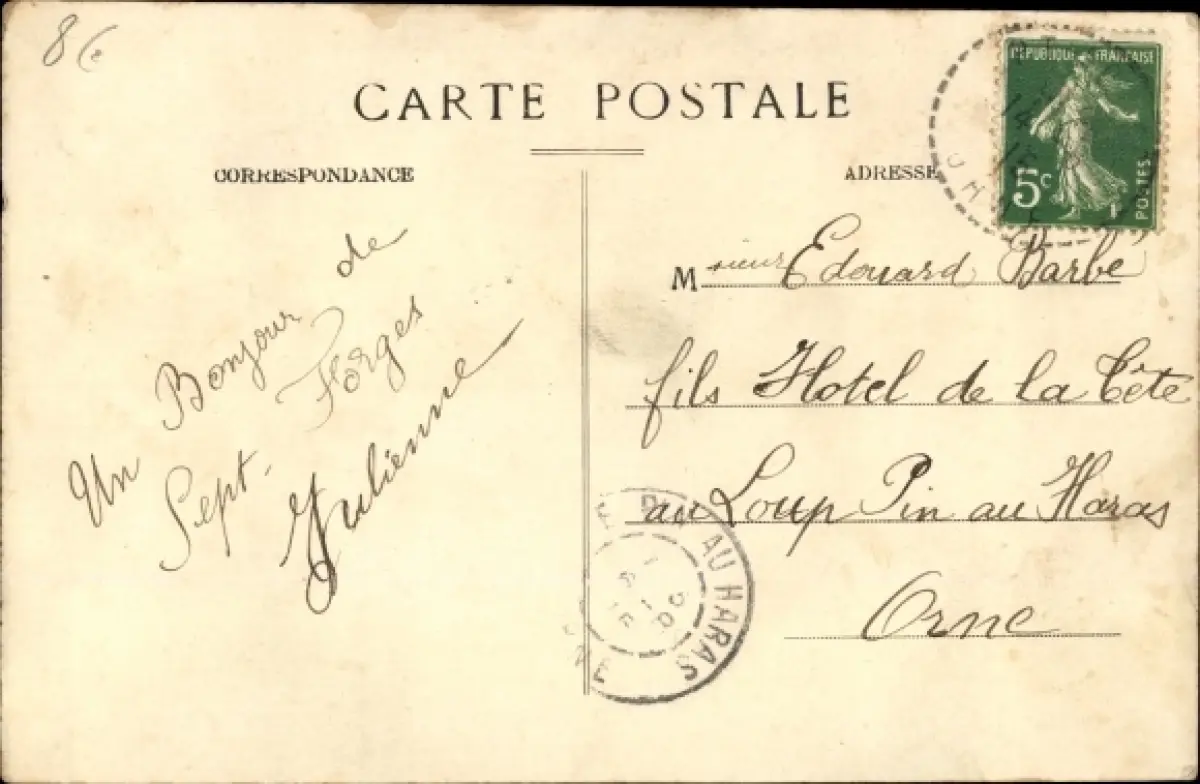 8€
CARTE POSTALE
CORRESPONDANCE
ADRESSE
RÉPUBLIQUE FRANÇAISE
5c
POSTES
Un Bonjour de
Sept-Forges
Julienne
Monsieur Edouard Barbé
fils Hotel de la Tête
au Loup Pin au Haras
Orne
LE PIN AU HARAS